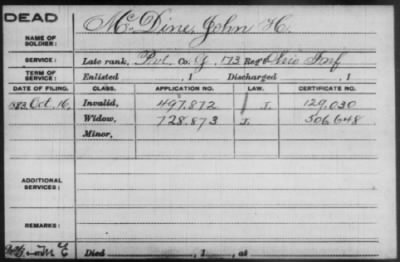 DEAD
NAME OF SOLDIER: McDine, John H.
SERVICE: Late rank, Pvt. Co. G, 173 Reg't Ohio Inf
TERM OF SERVICE: Enlisted , 1 Discharged , 1
DATE OF FILING. CLASS. APPLICATION NO. LAW. CERTIFICATE NO.
1883 Oct. 16, Invalid, 497.872 J. 129,030
Widow, 728.873 J. 506,648
Minor,
ADDITIONAL SERVICES:
REMARKS:
Died , 1 , at